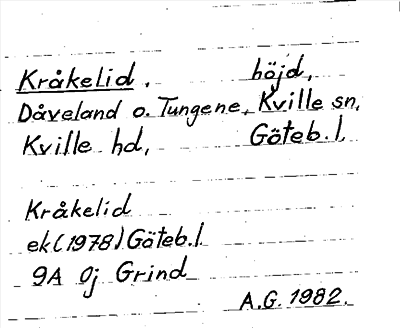 Kråkelid. höjd,
Dåveland o. Tungene, Kville sn,
Kville hd, Göteb.l.
Kråkelid
ek(1978) Göteb.l.
9A 0j Grind
A.G. 1982.